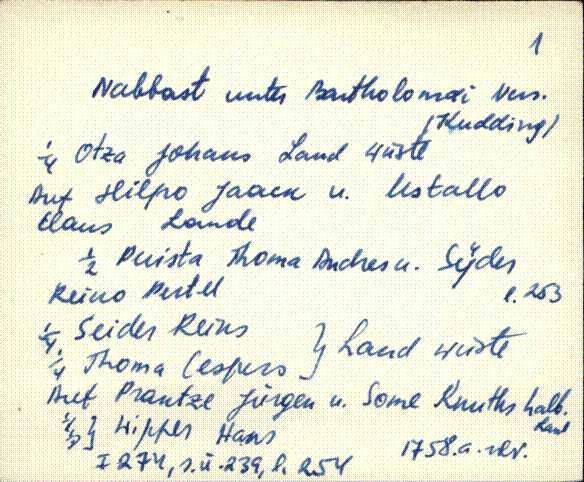 1
Nabbast unter Bartholomäi Vers.
(Kudding)
1/4 Otza Johans Land wüste
Auf Hilpo Jaack u. Ustallo
Claus Lande
1/2 Puista Thoma Andres u. Sÿder
Reino Pertel l. 253
1/4 Seider Reins
1/4 Thoma Caspers } Land wüste
Auf Prantze Jürgen u. Some Knuths halb.
Land
} Wipper Hans
I 274, s.ü. 239, l. 254 1758. a. rev.